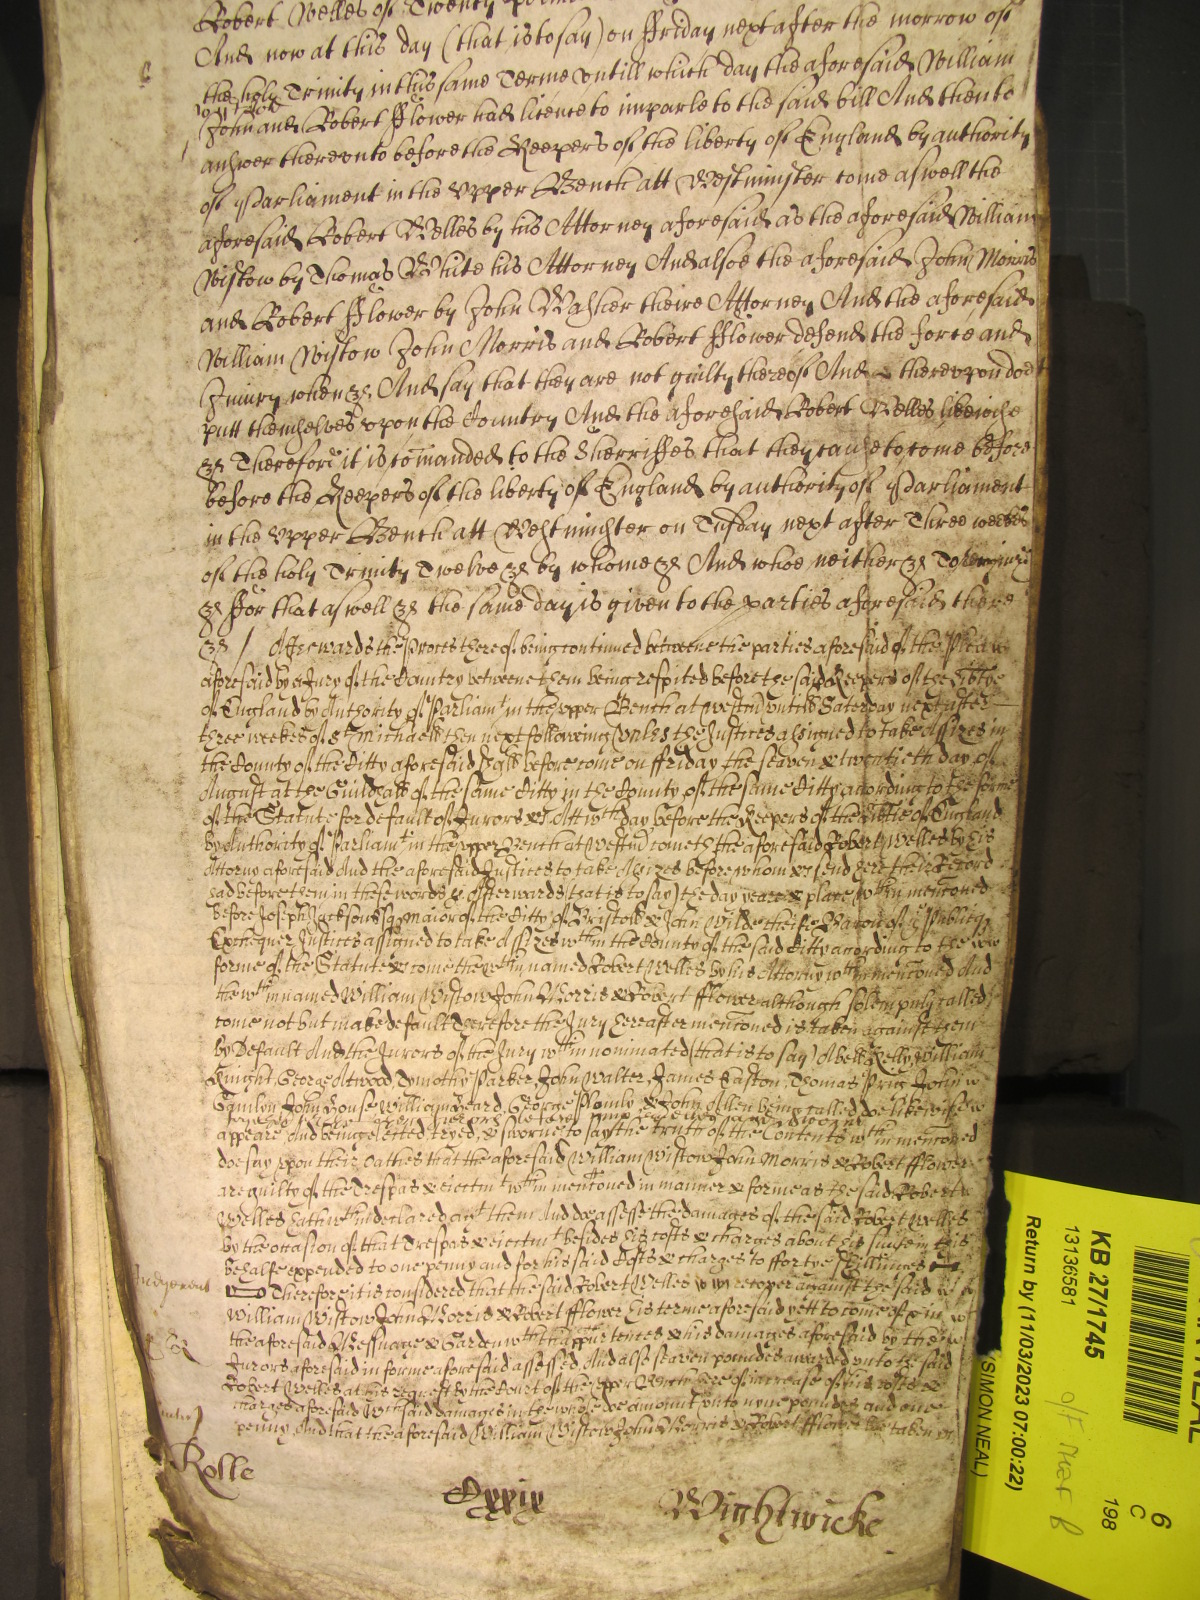 Robert Welles of Twenty
And now at this day (that is to say) on ffriday next after the morrow of
the holy Trinity in this same Terme untill which day the aforesaid William
John and Robert fflower had licence to imparle to the said bill And then to
answer thereunto before the Keepers of the liberty of England by authority
of Parliament in the Upper Bench att Westminster come aswell the
aforesaid Robert Welles by his Attorney aforesaid as the aforesaid William
Wistow by Thomas White his Attorney And alsoe the aforesaid John Morris
and Robert fflower by John Walker theire Attorney And the aforesaid
William Wistow John Morris and Robert fflower defend the force and
Iniury when &c And say that they are not guilty thereof And thereupon doe
putt themselves upon the Country And the aforesaid Robert Welles likewise
&c Therefore it is comanded to the Sherriffes that they cause to come before
before the Keepers of the liberty of England by authority of Parliament
in the Upper Bench att Westminster on Tusday next after Three weekes
of the holy Trinity Twelve &c by whome &c And whoe neither &c To recognize
&c ffor that aswell &c the same day is given to the parties aforesaid there
&c / Afterwards the Proces thereof being continued betweene the parties aforesaid of the Plea
aforesaid by a Jury of the Country betweene them being respited before the said Keepers of the Libtye
of England by Authority of Parliamt in the upper Bench at Westm untill Saturday next after
three weekes of St Michaell then next following Unles the Justices assigned to take Assizes in
the County of the Citty aforesaid shall before come on ffriday the seaven & twentieth day of
August at the Guildhall of the same Citty in the County of the same Citty acording to the forme
of the Statute for default of Jurors &c Att wch day before the Keepers of the Libtie of England
by Authority of Parliamt in the upper Bench at Westm cometh the aforesaid Robert Welles by his
Attorny aforesaid And the aforesaid Justices to take Assizes before whom &c send here their Record
had before them in these words &c Afterwards (that is to say) the day yeare & place wthin mentioned
before Joseph Jackson Esq Maior of the Citty of Bristow & John Wilde cheife Baron of ye Publiq
Exchequer Justices assigned to take Assizes wthin the County of the said Citty acording to the
forme of the Statute &c come the wthin named Robert Welles by his Attorny wthin mentioned And
the wthin named William Wistow John Morris & Robert fflower although solempnly called
come not but make default Therefore the Jury hereafter mentioned is taken against them
by Default And the Jurors of the Jury wthin nominated (that is to say) Abell Kelly William
Knight George Atwood Tymothy Parker, John Walter, James Easton, Thomas Prig John
Gamlyn John Rouse William Beard, George Plomly & John Allen being called doe likewise
appeare And being elected tryed, & sworne to say the truth of the Contents wthin mentioned
doe say upon their oathes that the aforesaid William Wistow John Morris & Robert fflower
are guilty of the Trespas & eiectmt wthin mentioned in manner & forme as the said Robert
Welles hath wthin declared agt them And do assesse the damages of the said Robert Welles
by the occasion of that Trespas & eiectmt besides his costs & charges about his suite in this
behalfe expended to one penny and for his said Costs & charges to fortye shillinges
Judgement
Therefore it is considered that the said Robert Welles recover against the said
William Wistow John Morris & Robert fflower his terme aforesaid yett to come of & in
the aforesaid Messuage & Garden wth thappurtences & his damages aforesaid by the
Jurors aforesaid in forme aforesaid assessed And alsoe seaven poundes awarded unto the said
Robert Welles at his request by the Court of the upper Bench here of increase of his costs &
charges aforesaid Wch said damages in the whole do amount unto nyne poundes and one
penny And that the aforesaid William Wistow John Morris & Robert fflower be taken
Rolle
Wightwicke
KB 27/1745
13136581
Return by (11/03/2023 07:00:22)
(SIMON NEAL)
6
C
198